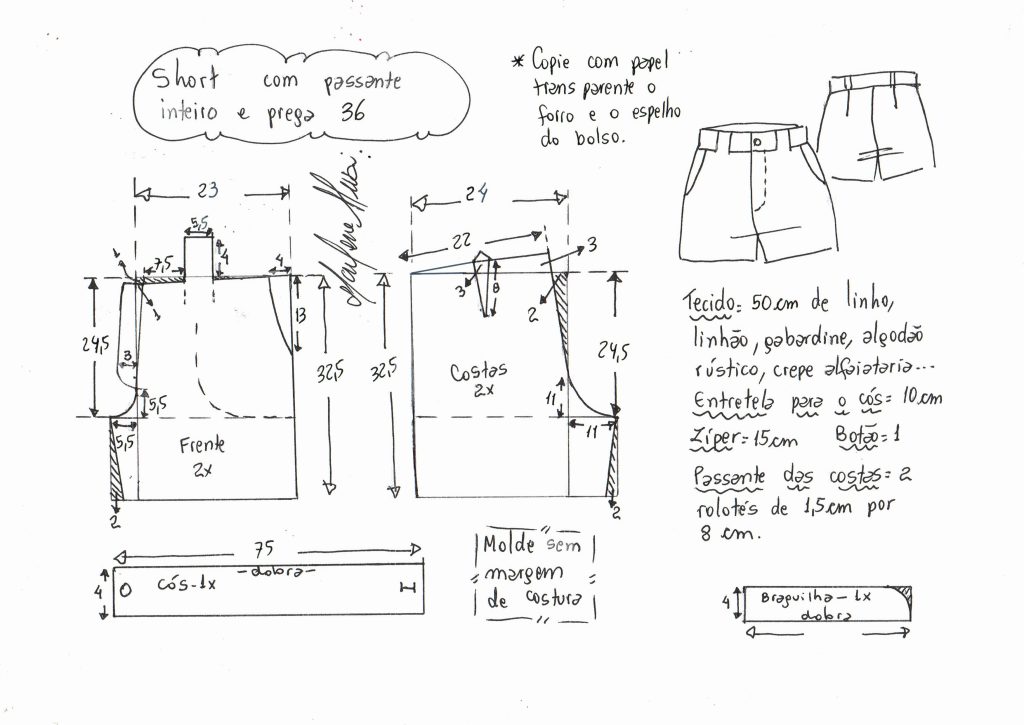 Short com passante
inteiro e prega 36
* Copie com papel
transparente o
forro e o espelho
do bolso.
Marlene Mukai
23
5,5
4
7,5
4
1
1
13
24,5
3
5,5
5,5
32,5
Frente
2x
2
24
22
3
3
8
2
32,5
Costas
2x
24,5
11
11
2
Tecido= 50cm de linho,
linhão, gabardine, algodão
rústico, crepe alfaiataria...
Entretela para o cós= 10cm
Zíper= 15cm Botão= 1
Passante das costas= 2
rolotés de 1,5cm por
8 cm.
75
4
cós-1x
-dobra-
Molde sem
margem
de costura
4
Braguilha-1x
dobra